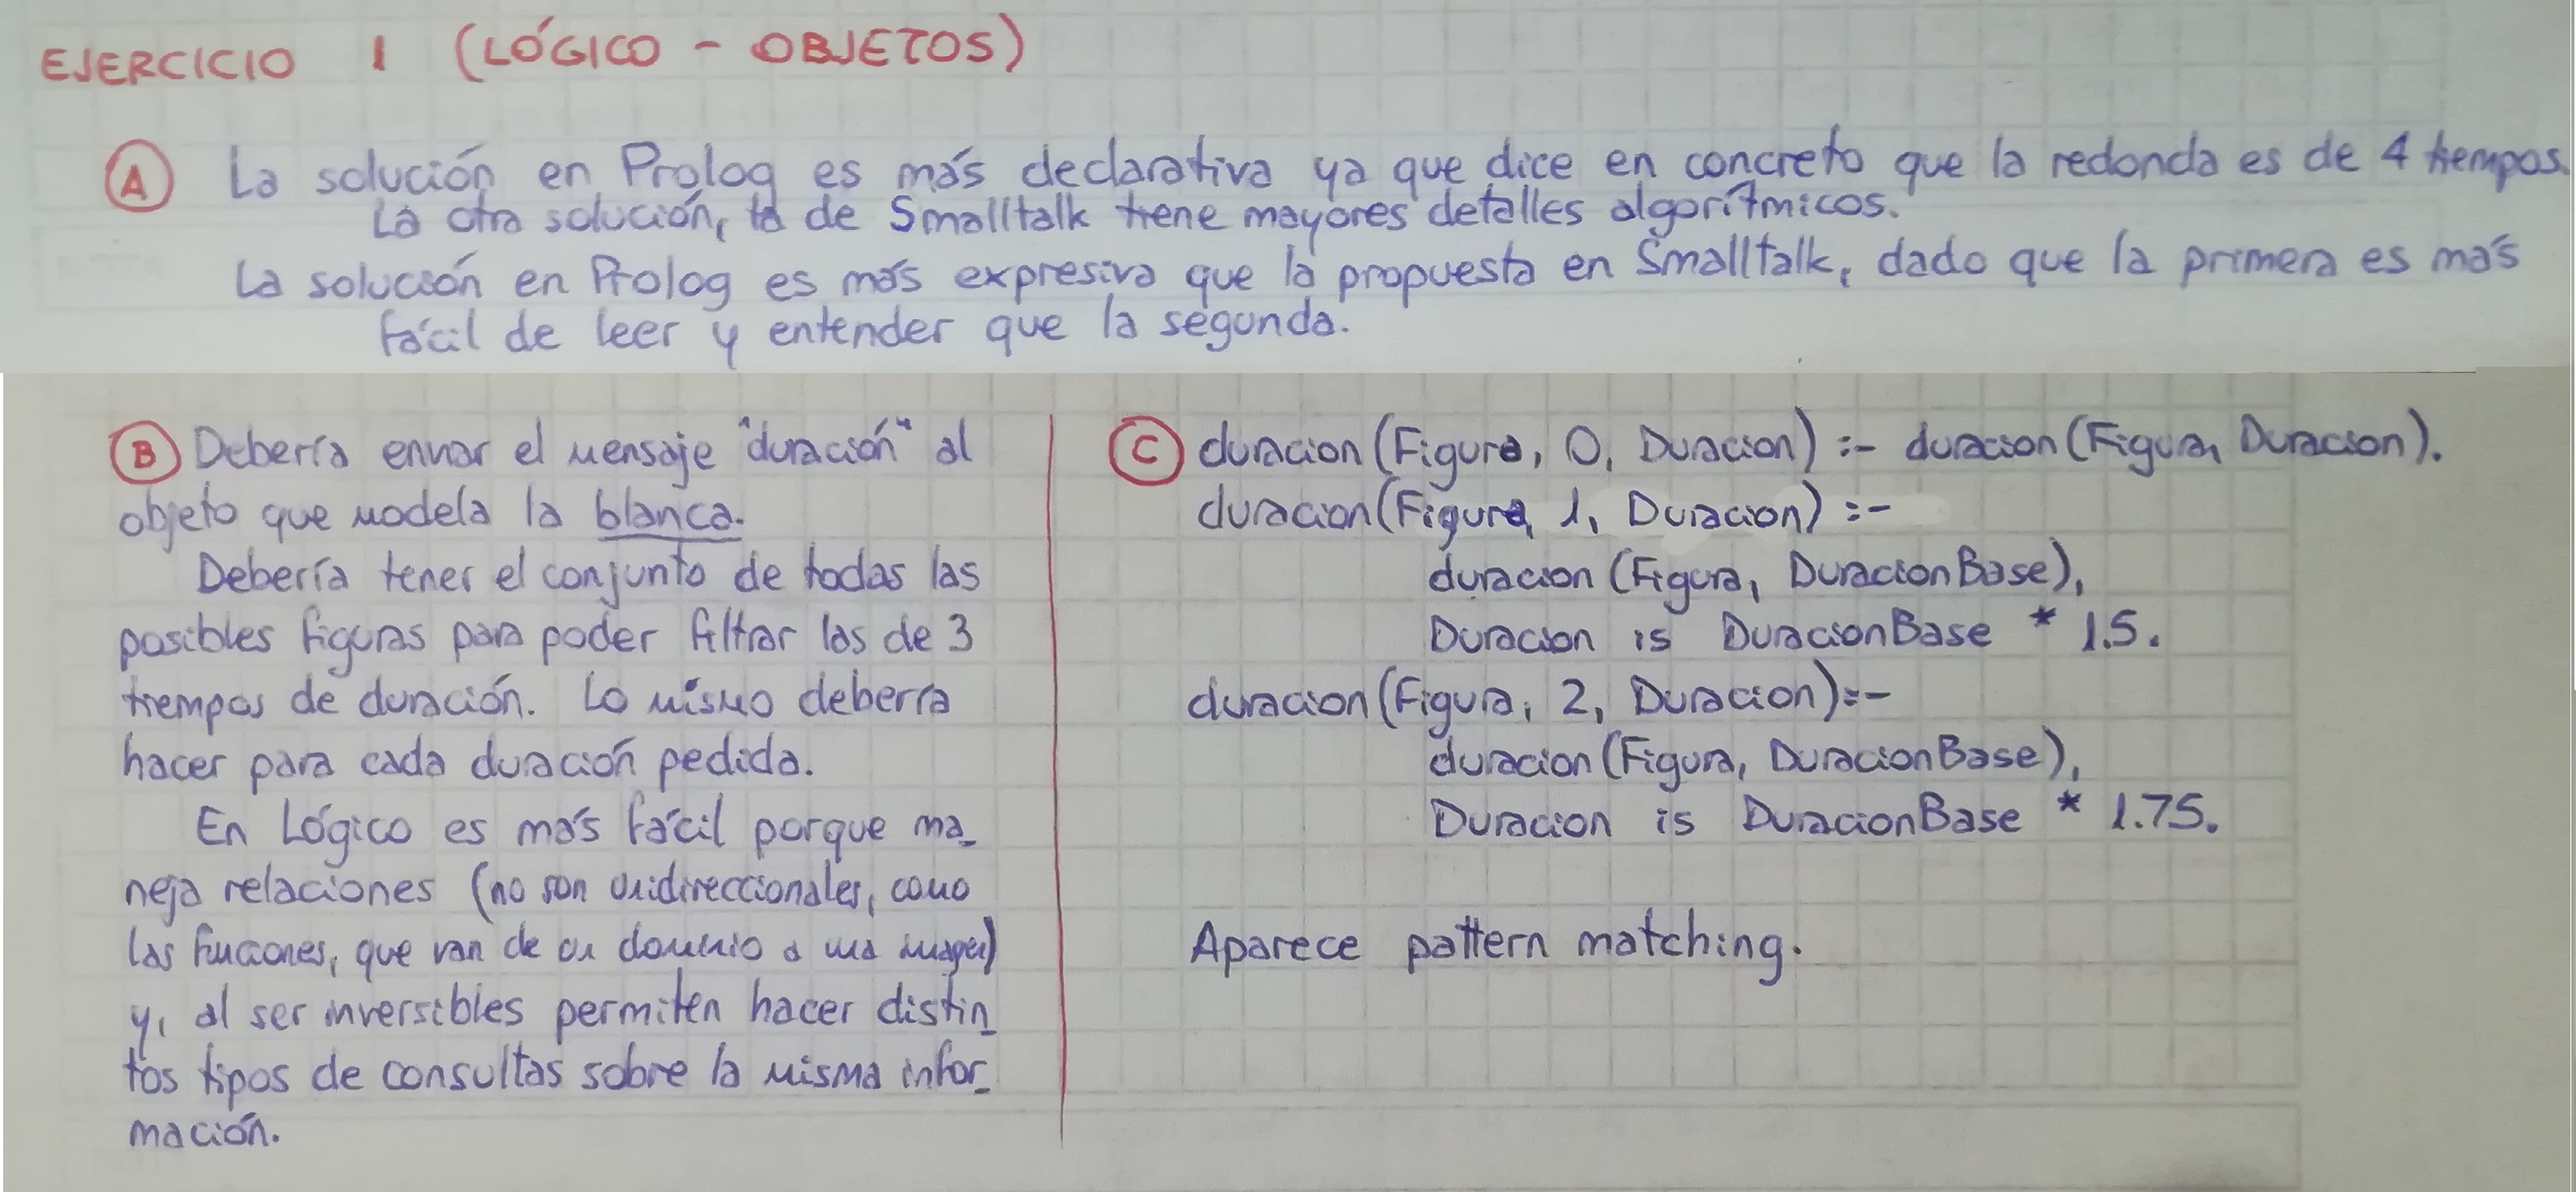 EJERCICIO 1 (LÓGICO - OBJETOS)
A La solución en Prolog es más declarativa ya que dice en concreto que la redonda es de 4 tiempos.
La otra solución, la de Smalltalk tiene mayores detalles algorítmicos.
La solución en Prolog es más expresiva que la propuesta en Smalltalk, dado que la primera es más
fácil de leer y entender que la segunda.
B Debería enviar el mensaje "duración" al
objeto que modela la blanca.
Debería tener el conjunto de todas las
posibles figuras para poder filtrar las de 3
tiempos de duración. Lo mismo debería
hacer para cada duración pedida.
En Lógico es más fácil porque ma_
neja relaciones (no son unidireccionales, como
las funciones, que van de un dominio a una imagen)
y, al ser inversibles permiten hacer distin_
tos tipos de consultas sobre la misma infor_
mación.
C duracion(Figura, 0, Duracion) :- duracion(Figura, Duracion).
duracion(Figura, 1, Duracion) :-
duracion(Figura, DuracionBase),
Duracion is DuracionBase * 1.5.
duracion(Figura, 2, Duracion):-
duracion(Figura, DuracionBase),
Duracion is DuracionBase * 1.75.
Aparece pattern matching.